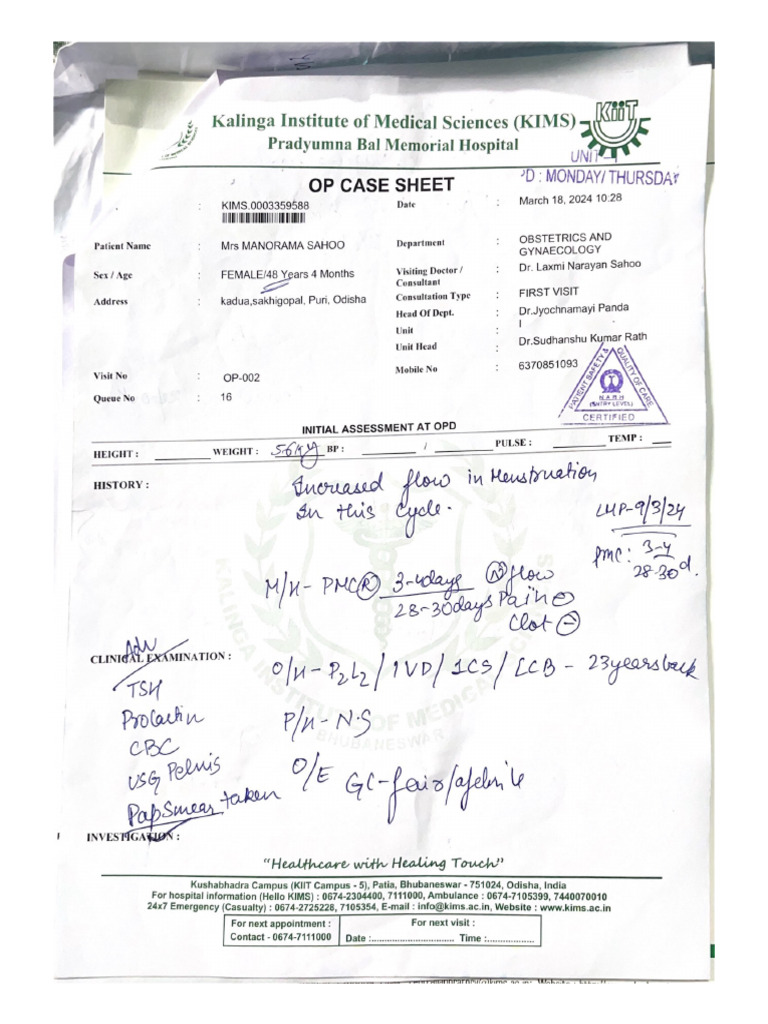 Kalinga Institute of Medical Sciences (KIMS)
KiiT
Pradyumna Bal Memorial Hospital
UNIT-I
OP CASE SHEET
D : MONDAY/ THURSDAY
: KIMS.0003359588
Date : March 18, 2024 10:28
Patient Name : Mrs MANORAMA SAHOO
Department : OBSTETRICS AND GYNAECOLOGY
Sex / Age : FEMALE/48 Years 4 Months
Visiting Doctor / Consultant : Dr. Laxmi Narayan Sahoo
Address : kadua,sakhigopal, Puri, Odisha
Consultation Type : FIRST VISIT
Head Of Dept. : Dr.Jyochnamayi Panda
Unit : I
Unit Head : Dr.Sudhanshu Kumar Rath
Visit No : OP-002
Mobile No : 6370851093
Queue No : 16
PATIENT SAFETY & QUALITY OF CARE
N A B H
(ENTRY LEVEL)
CERTIFIED
INITIAL ASSESSMENT AT OPD
HEIGHT : WEIGHT : 56kg BP : / PULSE : TEMP :
HISTORY : Increased flow in Menstruation
In this Cycle.
LMP-9/3/24
PMC: 3-4
28-30d.
M/H- PMC(R) 3-4days (N) flow
28-30days Pain (-)
Clot (-)
Adv
CLINICAL EXAMINATION :
O/H- P2L2/1VD/1CS/LCB - 23yearsback
TSH
Prolactin
P/H- N.S
CBC
USG Pelvis
O/E GC-fair/afebrile
Pap Smear taken
INVESTIGATION :
KALINGA INSTITUTE OF MEDICAL SCIENCES
BHUBANESWAR
"Healthcare with Healing Touch"
Kushabhadra Campus (KIIT Campus - 5), Patia, Bhubaneswar - 751024, Odisha, India
For hospital information (Hello KIMS) : 0674-2304400, 7111000, Ambulance : 0674-7105399, 7440070010
24x7 Emergency (Casualty) : 0674-2725228, 7105354, E-mail : info@kims.ac.in, Website : www.kims.ac.in
For next appointment :
Contact - 0674-7111000
For next visit :
Date :................................ Time :.................